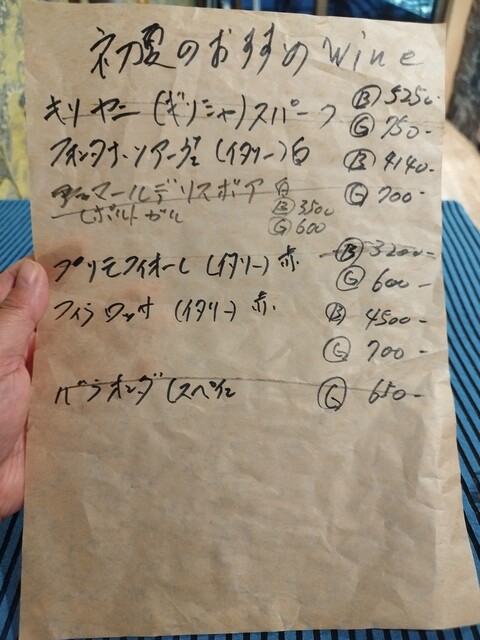 初夏のおすすめ Wine
キリヤニー(ギリシャ)スパーク Ⓑ 5250-
Ⓖ 750-
フォンタナ・ソアーヴェ(イタリー)白 Ⓑ 4140-
Ⓖ 700-
マールデリスボア 白
(ポルトガル Ⓑ 3500
Ⓖ 600
プリモフィオーレ(イタリー)赤 Ⓑ 3200-
Ⓖ 600-
フィラ ロッサ(イタリー)赤 Ⓑ 4500-
Ⓖ 700-
バラオンダ(スペイン Ⓖ 650-